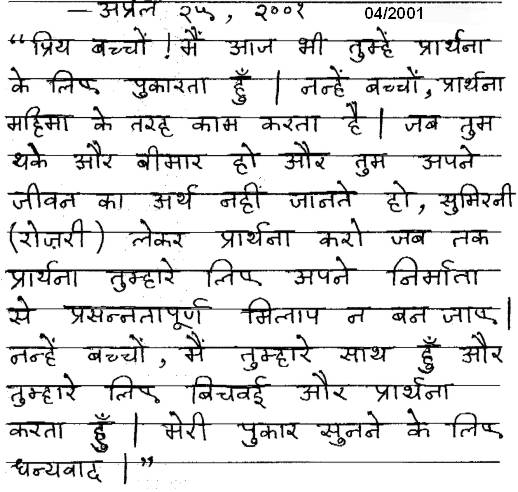 — अप्रैल २५, २००१ 04/2001
“प्रिय बच्चों ! मैं आज भी तुम्हें प्रार्थना
के लिए पुकारता हूँ | नन्हें बच्चों, प्रार्थना
महिमा के तरह काम करता है | जब तुम
थके और बीमार हो और तुम अपने
जीवन का अर्थ नहीं जानते हो, सुमिरनी
(रोज़री) लेकर प्रार्थना करो जब तक
प्रार्थना तुम्हारे लिए अपने निर्माता
से प्रसन्नतापूर्ण मिलाप न बन जाए |
नन्हें बच्चों, मैं तुम्हारे साथ हूँ और
तुम्हारे लिए बिचवई और प्रार्थना
करता हूँ | मेरी पुकार सुनने के लिए
धन्यवाद |”